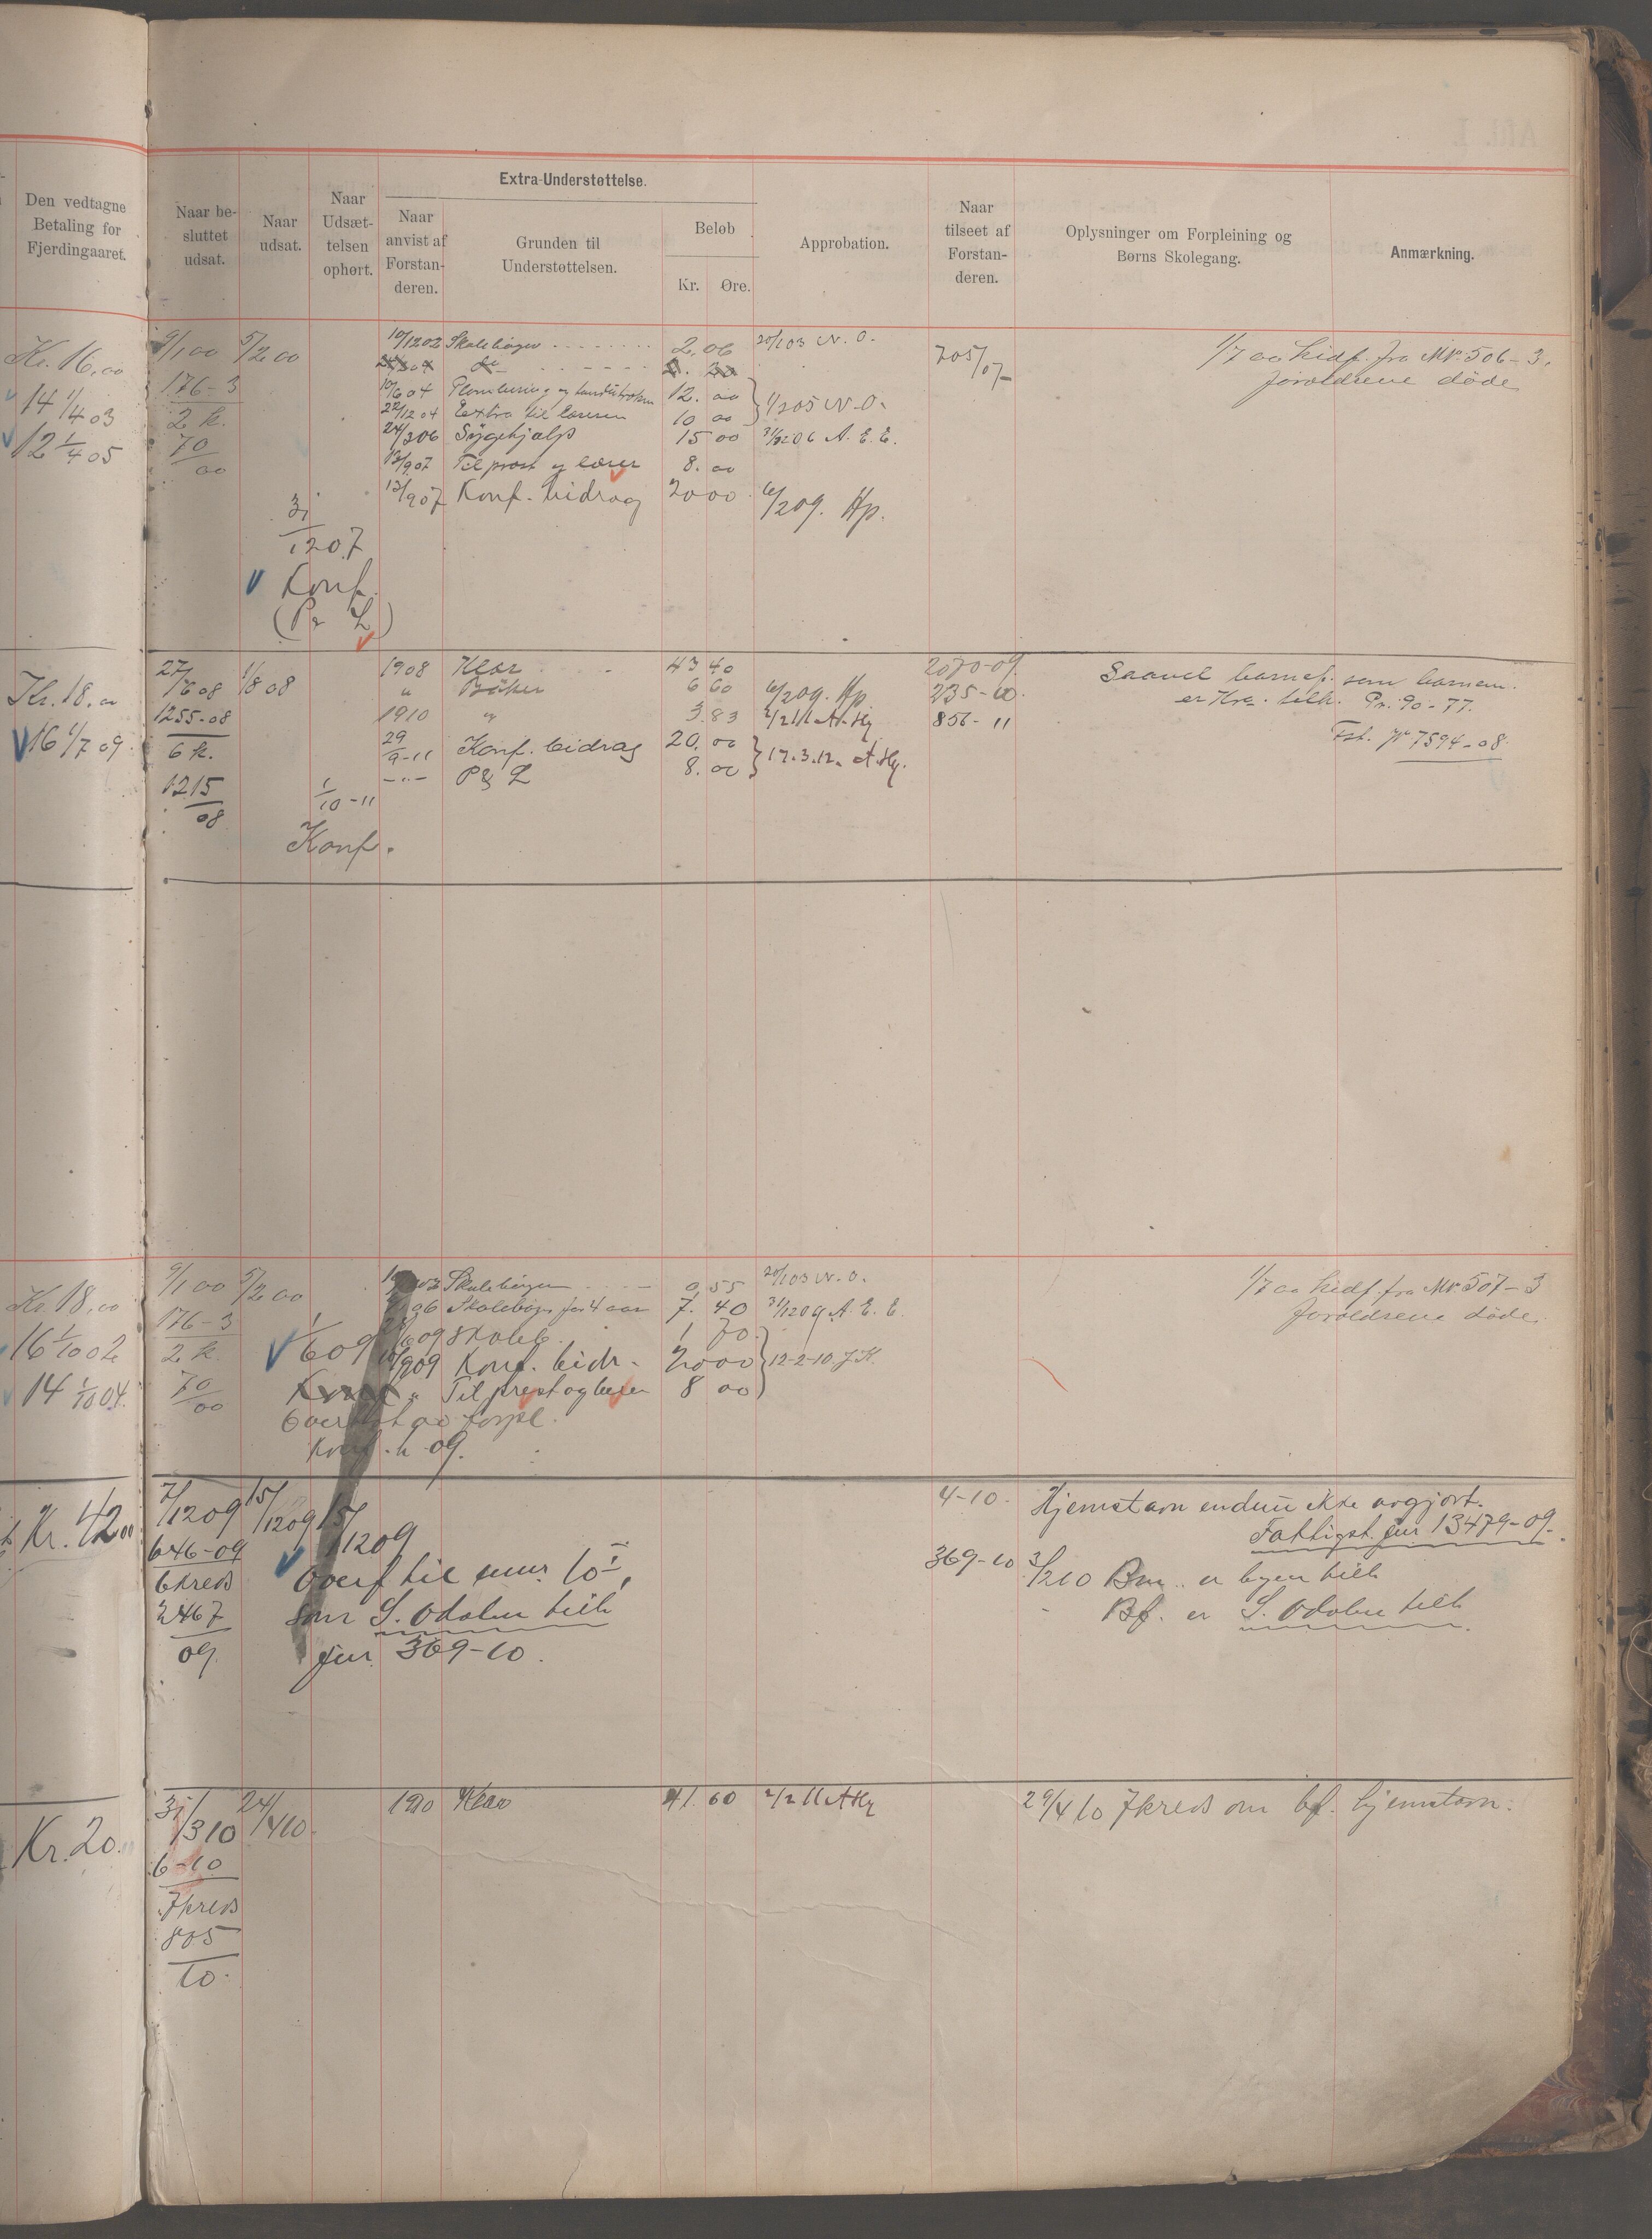 Den vedtagne
Betaling for
Fjerdingaaret.
Naar be-
sluttet
udsat.
Naar
udsat.
Naar
Udsæt-
telsen
ophørt.
Extra-Understøttelse.
Naar
anvist af
Forstan-
deren.
Grunden til
Understøttelsen.
Beløb
Kr. Øre.
Approbation.
Naar
tilseet af
Forstan-
deren.
Oplysninger om Forpleining og
Børns Skolegang.
Anmærkning.
Kr. 16,00
14 1/4 03
12 1/4 05
9/1 00 5/2 00
176-3
2 k.
70/00
10/12 02 Skolebøger 2,06 20/1 03 N. O.
10/6 04 12. 00
22/12 04 Extra til læreren 10 00 1/2 05 N. O.
24/3 06 Sygehjælp 15 00 31/12 06 A. E. E.
13/9 07 Til prest og lærer 8. 00
13/9 07 Konf. bidrag 20 00 6/2 09. Hp.
705/07
1/7 00 hidf. fra Mk. 506-3.
forældrene døde
31/12 07
Konf.
(P & L)
Kr. 18,00
16 1/7 09.
27/6 08 1/8 08
1255-08
6 k.
1215/08
1908 Klær 43 40
" Bøker 6 60 6/2 09. Hp
1910 " 3.83 2/2 11 A. Hg
29/9-11 Konf. bidrag 20. 00
-"- P & L 8. 00 17.3.12. A. Hg.
1/10-11
Konf.
2070-09.
235-10.
856-11
Saavel barnef. som barnem.
er Kra. tilh. Pr. 90-77.
Fst. Jr 7594-08.
Kr. 18,00
16 1/10 02
14 1/10 04.
9/1 00 5/2 00
176-3
2 k.
70/00
Skolebøger 0,55 20/1 03 N. O.
Skolebøger for 4 aar 7. 40 31/12 09 A. E. E.
1/6 09
09 Skoleb. 1 70
10/9 09 Konf. bidr. 20 00 12-2-10. J. K.
" Til prest og lærer 8 00
forpl.
Konf. h. 09.
1/7 00 hidf. fra Mk. 507-3
forældrene døde.
Kr. 42 00
7/12 09 15/12 09 15/12 09
646-09
6 kreds
2467/09.
Overf til 10-I,
som S. Odalen tilh
jur. 369-10.
4-10.
369-10
Hjemstavn endnu ikke avgjort.
Fattigst. jur 13479-09.
3/2 10 Bm. er byen tilh
Bf. er S. Odalen tilh.
Kr. 20.
31/3 10 24/4 10.
6-10
7 kreds
805/10.
1910 Klær 41. 60 2/2 11 A Hg
29/4 10 7 kreds om bf. hjemstavn.